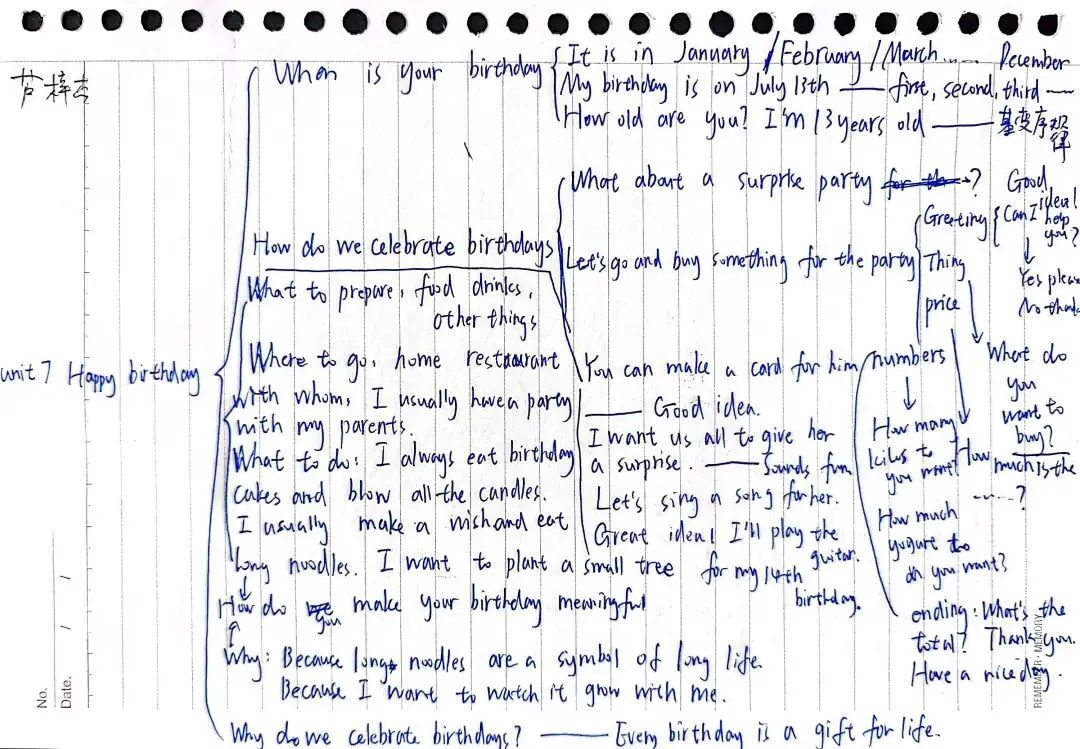 芦梓杰
unit 7 Happy birthday
When is your birthday
It is in January / February / March ...... December
My birthday is on July 13th —— first, second, third ——
How old are you? I'm 13 years old —— 基变序规律
How do we celebrate birthdays
What about a surprise party ? Good idea!
Let's go and buy something for the party
Greeting
Can I help you?
Yes please
No thanks
Thing
What do you want to buy?
price
How much is the ------?
numbers
How many kilos to you want
How much yogurt do you want?
ending: What's the total? Thank you.
Have a nice day.
You can make a card for him
—— Good idea.
I want us all to give her
a surprise. —— Sounds fun.
Let's sing a song for her.
Great idea! I'll play the guitar.
What to prepare: food drinks,
other things
Where to go: home restaurant
with whom: I usually have a party
with my parents.
What to do: I always eat birthday
cakes and blow all the candles.
I usually make a wish and eat
long noodles. I want to plant a small tree for my 14th birthday.
How do you make your birthday meaningful
Why: Because long noodles are a symbol of long life.
Because I want to watch it grow with me.
Why do we celebrate birthdays? —— Every birthday is a gift for life.
No.
Date. / /
REMEMBER · MEMORY